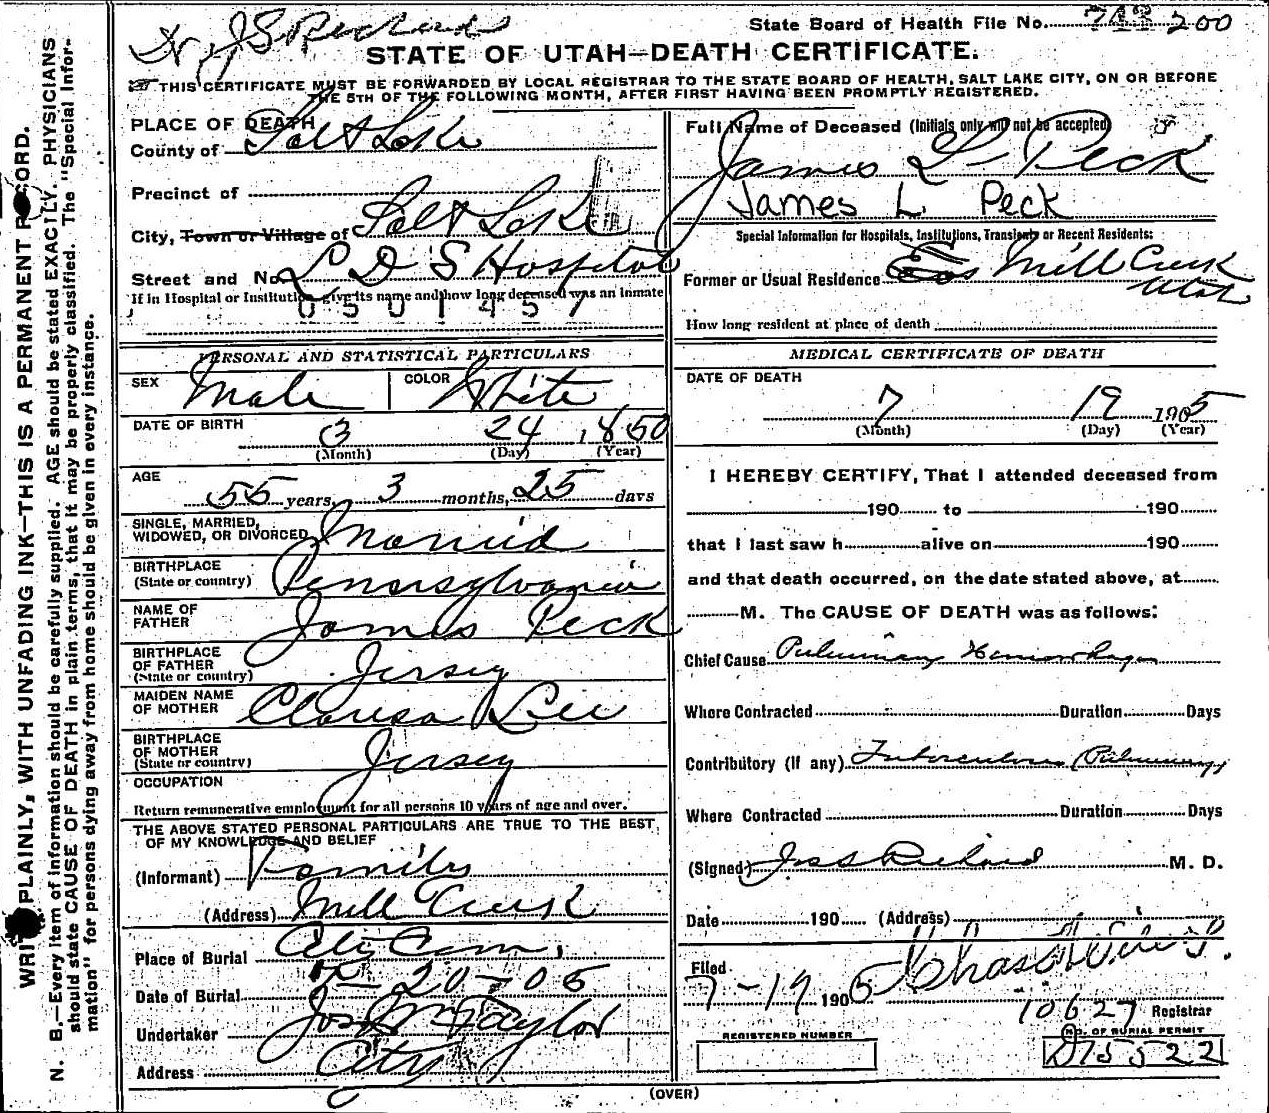 State Board of Health File No. 200
STATE OF UTAH—DEATH CERTIFICATE.
THIS CERTIFICATE MUST BE FORWARDED BY LOCAL REGISTRAR TO THE STATE BOARD OF HEALTH, SALT LAKE CITY, ON OR BEFORE
THE 5TH OF THE FOLLOWING MONTH, AFTER FIRST HAVING BEEN PROMPTLY REGISTERED.
WRITE PLAINLY, WITH UNFADING INK—THIS IS A PERMANENT RECORD.
N. B.—Every item of information should be carefully supplied. AGE should be stated EXACTLY. PHYSICIANS
should state CAUSE OF DEATH in plain terms, that it may be properly classified. The "Special Infor-
mation" for persons dying away from home should be given in every instance.
PLACE OF DEATH
County of Salt Lake
Precinct of
City, Town or Village of Salt Lake
Street and No. L D S Hospital
If in Hospital or Institution, give its name and how long deceased was an inmate
0501457
PERSONAL AND STATISTICAL PARTICULARS
SEX Male COLOR White
DATE OF BIRTH 3 24 1850
(Month) (Day) (Year)
AGE
55 years, 3 months, 25 days
SINGLE, MARRIED,
WIDOWED, OR DIVORCED Married
BIRTHPLACE
(State or country) Pennsylvania
NAME OF
FATHER James Peck
BIRTHPLACE
OF FATHER
(State or country) Jersey
MAIDEN NAME
OF MOTHER Clarisa Lee
BIRTHPLACE
OF MOTHER
(State or country) Jersey
OCCUPATION
Return remunerative employment for all persons 10 years of age and over.
THE ABOVE STATED PERSONAL PARTICULARS ARE TRUE TO THE BEST
OF MY KNOWLEDGE AND BELIEF
(Informant) Family
(Address) Mill Creek
Place of Burial City Cem.
Date of Burial 20-05
Undertaker Jos Wm Taylor
Address City
Full Name of Deceased (Initials only will not be accepted)
James L Peck
James L Peck
Special Information for Hospitals, Institutions, Transients or Recent Residents:
Former or Usual Residence Mill Creek
Utah
How long resident at place of death
MEDICAL CERTIFICATE OF DEATH
DATE OF DEATH
7 19 1905
(Month) (Day) (Year)
I HEREBY CERTIFY, That I attended deceased from
190 to 190
that I last saw h alive on 190
and that death occurred, on the date stated above, at
M. The CAUSE OF DEATH was as follows:
Chief Cause Pulmonary Hemorrhage
Where Contracted Duration Days
Contributory (If any) Tuberculosis (Pulmonary)
Where Contracted Duration Days
(Signed) Richard M. D.
Date 190 (Address)
Filed
7-19 1905 Chas
10627 Registrar
REGISTERED NUMBER
NO. OF BURIAL PERMIT
D15522
(OVER)